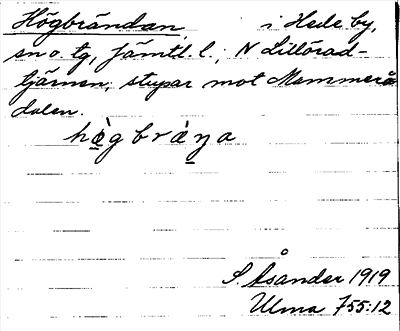 Högbrändan, i Hede by,
sn o tg, Jämtl l., N Lillörad-
tjärnen, stupar mot Memmerå
dalen.
hö̀gbrä̀ŋa
S. Åsander 1919
Ulma 755:12